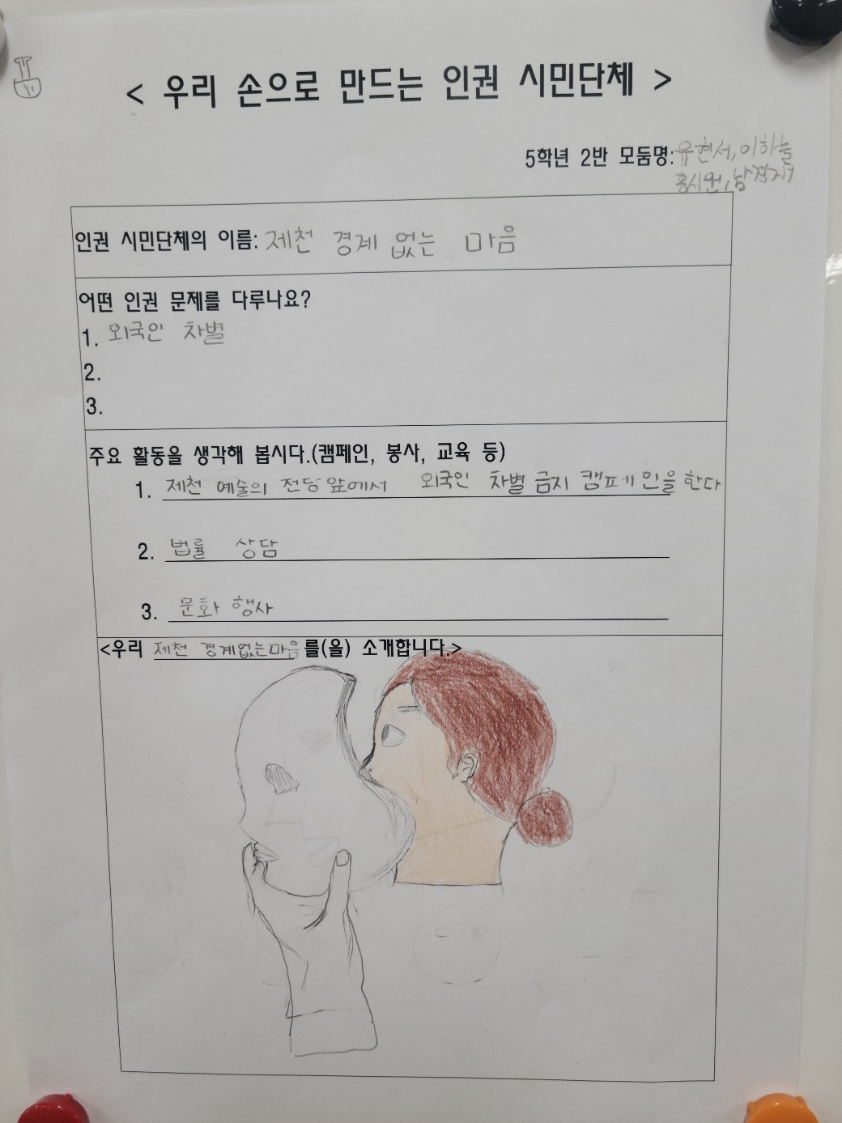 < 우리 손으로 만드는 인권 시민단체 >
5학년 2반 모둠명: 유현서, 이하늘
인권 시민단체의 이름: 제천 경계 없는 마음
어떤 인권 문제를 다루나요?
1. 외국인 차별
2.
3.
주요 활동을 생각해 봅시다.(캠페인, 봉사, 교육 등)
1. 제천 예술의 전당 앞에서 외국인 차별 금지 캠페인을 한다
2. 법률 상담
3. 문화 행사
<우리 제천 경계없는마음를(을) 소개합니다.>